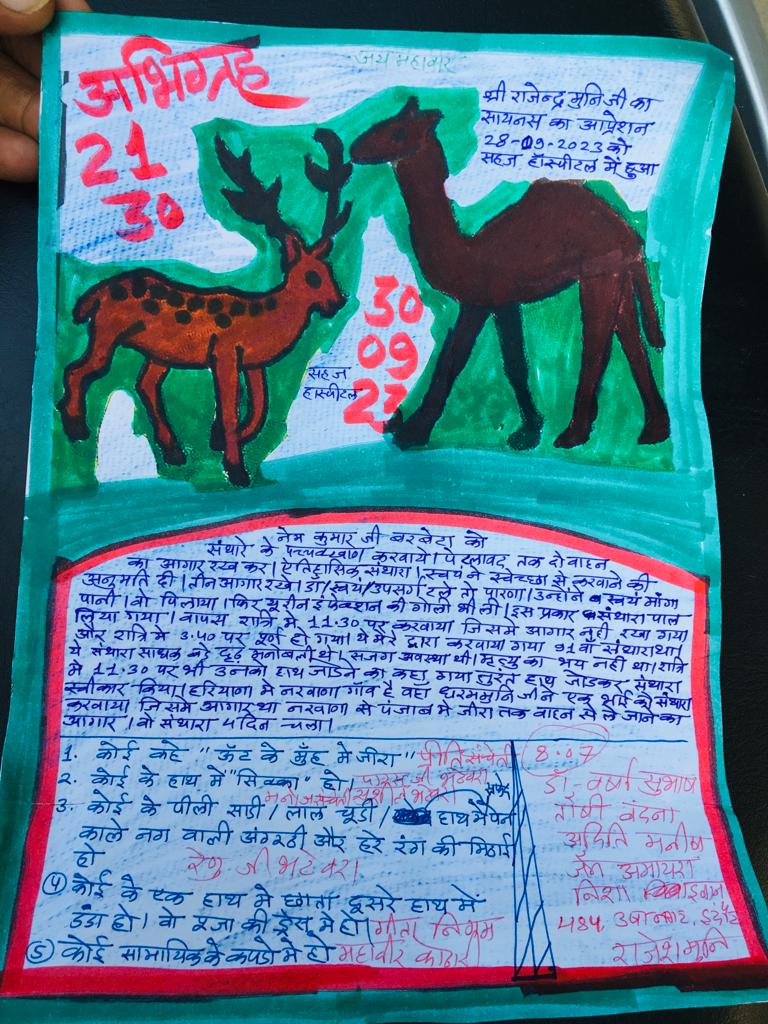 जय महावीर
अभिग्रह
21
30
श्री राजेन्द्र मुनि जी का
सायनस का आप्रेशन
28-09-2023 को
सहज हॉस्पीटल में हुआ
30
09
23
सहज
हास्पीटल
नेम कुमार जी बरबेटा को
संथारे के पच्चक्खाण करवाये। पेटलावद तक दो वाहन
का आगार रख कर। ऐतिहासिक संथारा। स्वयं ने स्वेच्छा से करवाने की
अनुमति दी। तीन आगार रखे। डॉ/स्वयं/उपसर्ग टले तो पारणा। उन्होने स्वयं मांगा
पानी। वो पिलाया। फिर यूरीन इंफेक्शन की गोली भी ली। इस प्रकार संथारा पाल
लिया गया। वापस रात्रि मे 11.30 पर करवाया जिसमे आगार नही रखा गया
और रात्रि मे 3.40 पर पूर्ण हो गया। ये मेरे द्वारा करवाया गया 91 वां संथारा था।
ये संथारा साधक बडे दृढ़ मनोबली थे। सजग अवस्था थी। मृत्यु का भय नही था। रात्रि
मे 11.30 पर भी उनको हाथ जोडने का कहा गया तुरंत हाथ जोडकर संथारा
स्वीकार किया। हरियाणा मे नरवाणा गाँव है वहा धरममुनि जी ने एक भाई को संथारा
करवाया जिसमे आगार था नरवाणा से पंजाब मे जीरा तक वाहन से ले जाने का
आगार। वो संथारा 4 दिन चला।
1. कोई कहे "ऊँट के मुँह मे जीरा" प्रीति संचेती
2. कोई के हाथ में "सिक्का" हो। पारस जी भटेवरा
3. कोई के पीली साडी / लाल चूडी / हाथ मे पेन
काले नग वाली अंगूठी और हरे रंग की मिठाई
हो रेणु जी भटेवरा
④ कोई के एक हाथ मे छाता दूसरे हाथ में
डंडा हो। वो पूजा की ड्रेस मे हो। गीता निगम
⑤ कोई सामायिक के कपडो मे हो महावीर कोठारी
8.07
डॉ. वर्षा सुभाष
तोषी वंदना
अदिति मनीष
जैन अमायरा
निशा
484, उषानगर, इंदौर
राजेश मुनि